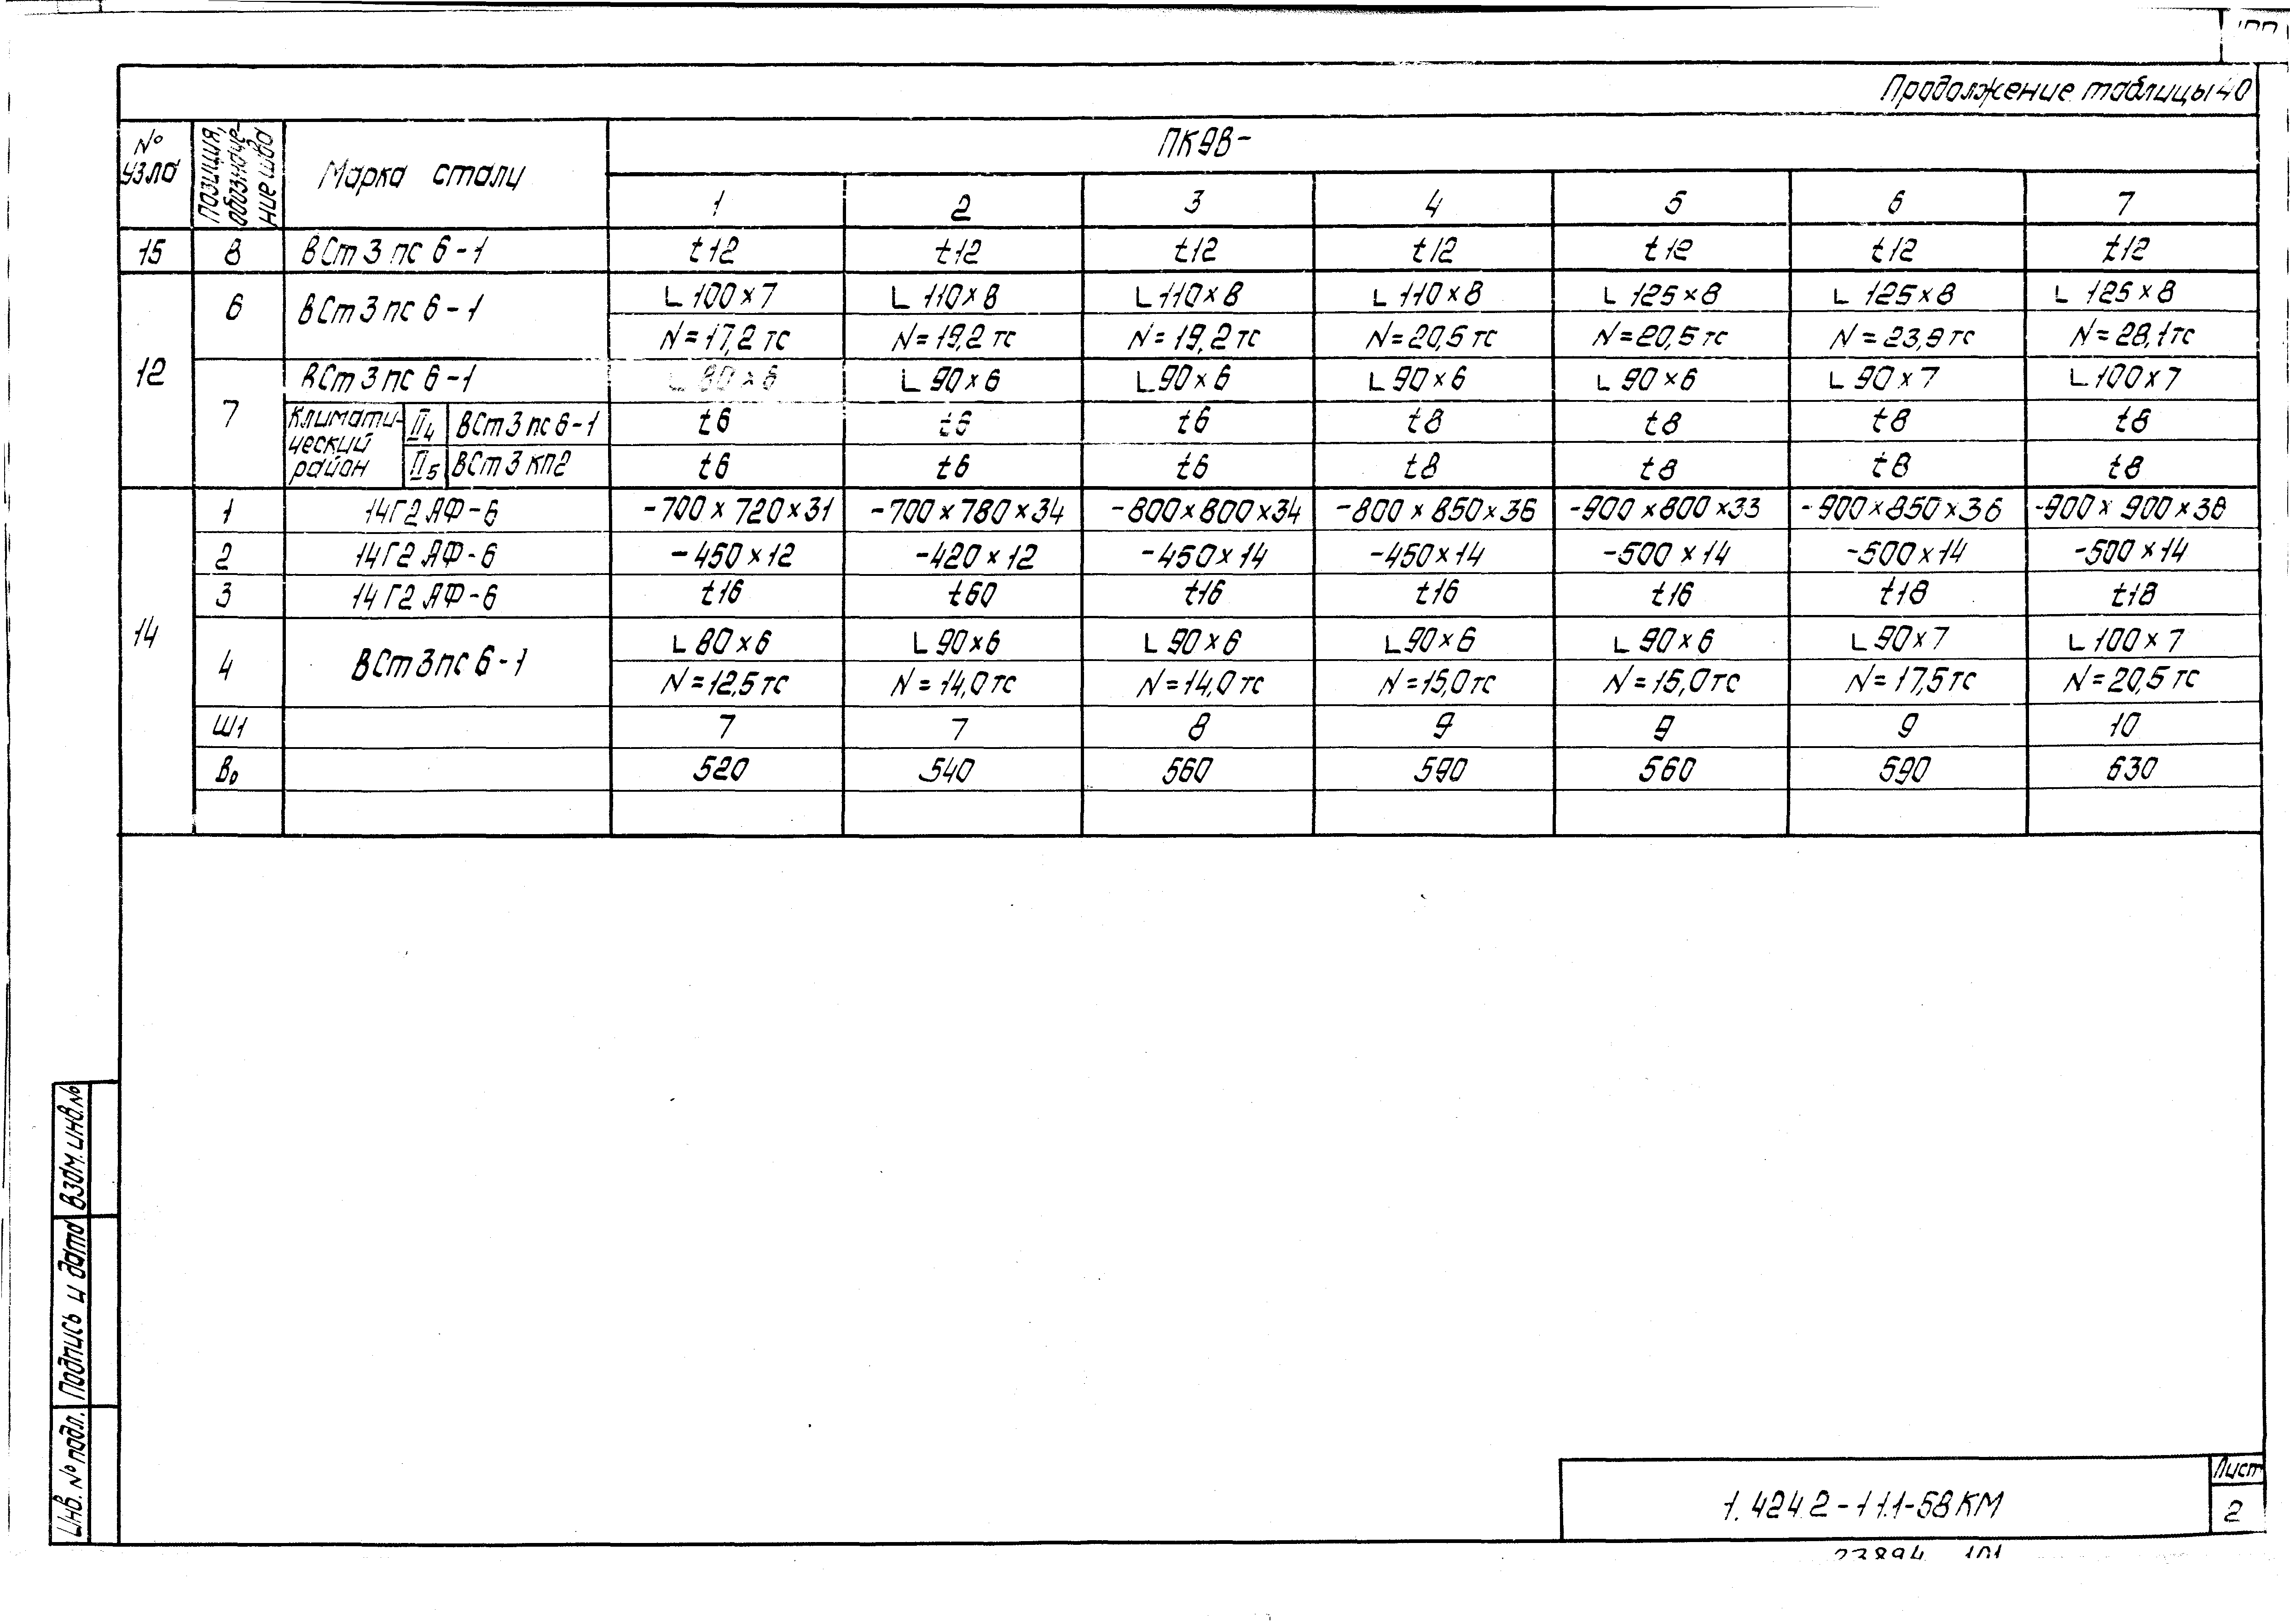 Продолжение таблицы 40
№ узла | Позиция, обозначение шва | Марка стали | ПК9В-
1 | 2 | 3 | 4 | 5 | 6 | 7
15 | 8 | ВСт3пс6-1 | t12 | t12 | t12 | t12 | t12 | t12 | t12
12 | 6 | ВСт3пс6-1 | L 100×7 | L 110×8 | L 110×8 | L 110×8 | L 125×8 | L 125×8 | L 125×8
N=17,2тс | N=19,2тс | N=19,2тс | N=20,5тс | N=20,5тс | N=23,9тс | N=28,1тс
7 | ВСт3пс6-1 | L 80×6 | L 90×6 | L 90×6 | L 90×6 | L 90×6 | L 90×7 | L 100×7
Климатический район | II4 | ВСт3пс6-1 | t6 | t6 | t6 | t8 | t8 | t8 | t8
II5 | ВСт3кп2 | t6 | t6 | t6 | t8 | t8 | t8 | t8
14 | 1 | 14Г2АФ-6 | -700×720×31 | -700×780×34 | -800×800×34 | -800×850×36 | -900×800×33 | -900×850×36 | -900×900×38
2 | 14Г2АФ-6 | -450×12 | -420×12 | -450×14 | -450×14 | -500×14 | -500×14 | -500×14
3 | 14Г2АФ-6 | t16 | t60 | t16 | t16 | t16 | t18 | t18
4 | ВСт3пс6-1 | L 80×6 | L 90×6 | L 90×6 | L 90×6 | L 90×6 | L 90×7 | L 100×7
N=12,5тс | N=14,0тс | N=14,0тс | N=15,0тс | N=15,0тс | N=17,5тс | N=20,5тс
Ш1 | 7 | 7 | 8 | 9 | 9 | 9 | 10
В₀ | 520 | 540 | 560 | 590 | 560 | 590 | 630
Инв. № подл. | Подпись и дата | Взам. инв. №
1.424.2-11.1-58КМ
Лист
2
23894 101